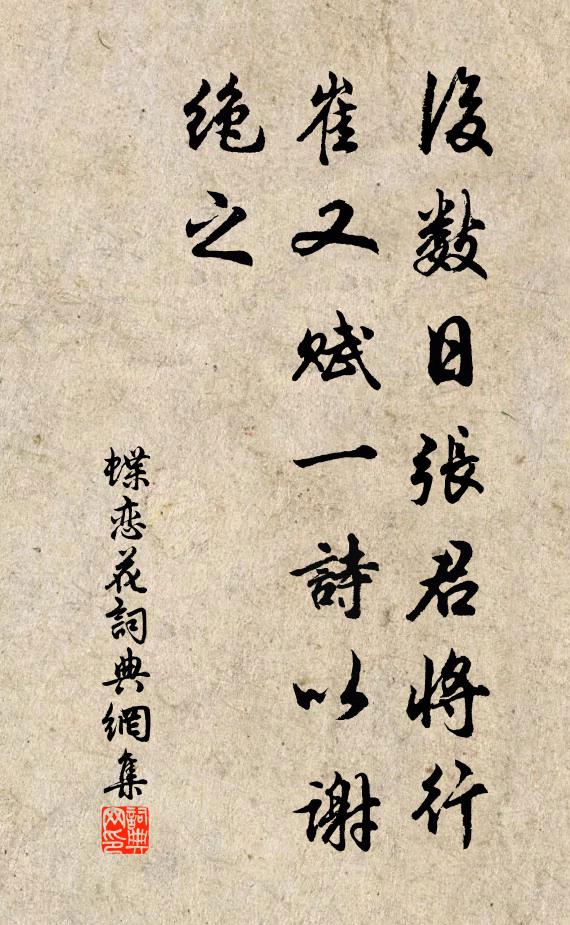 後數日張君將行
崔又賦一詩以謝
絕之
蝶恋花詞典網集
詞典网印